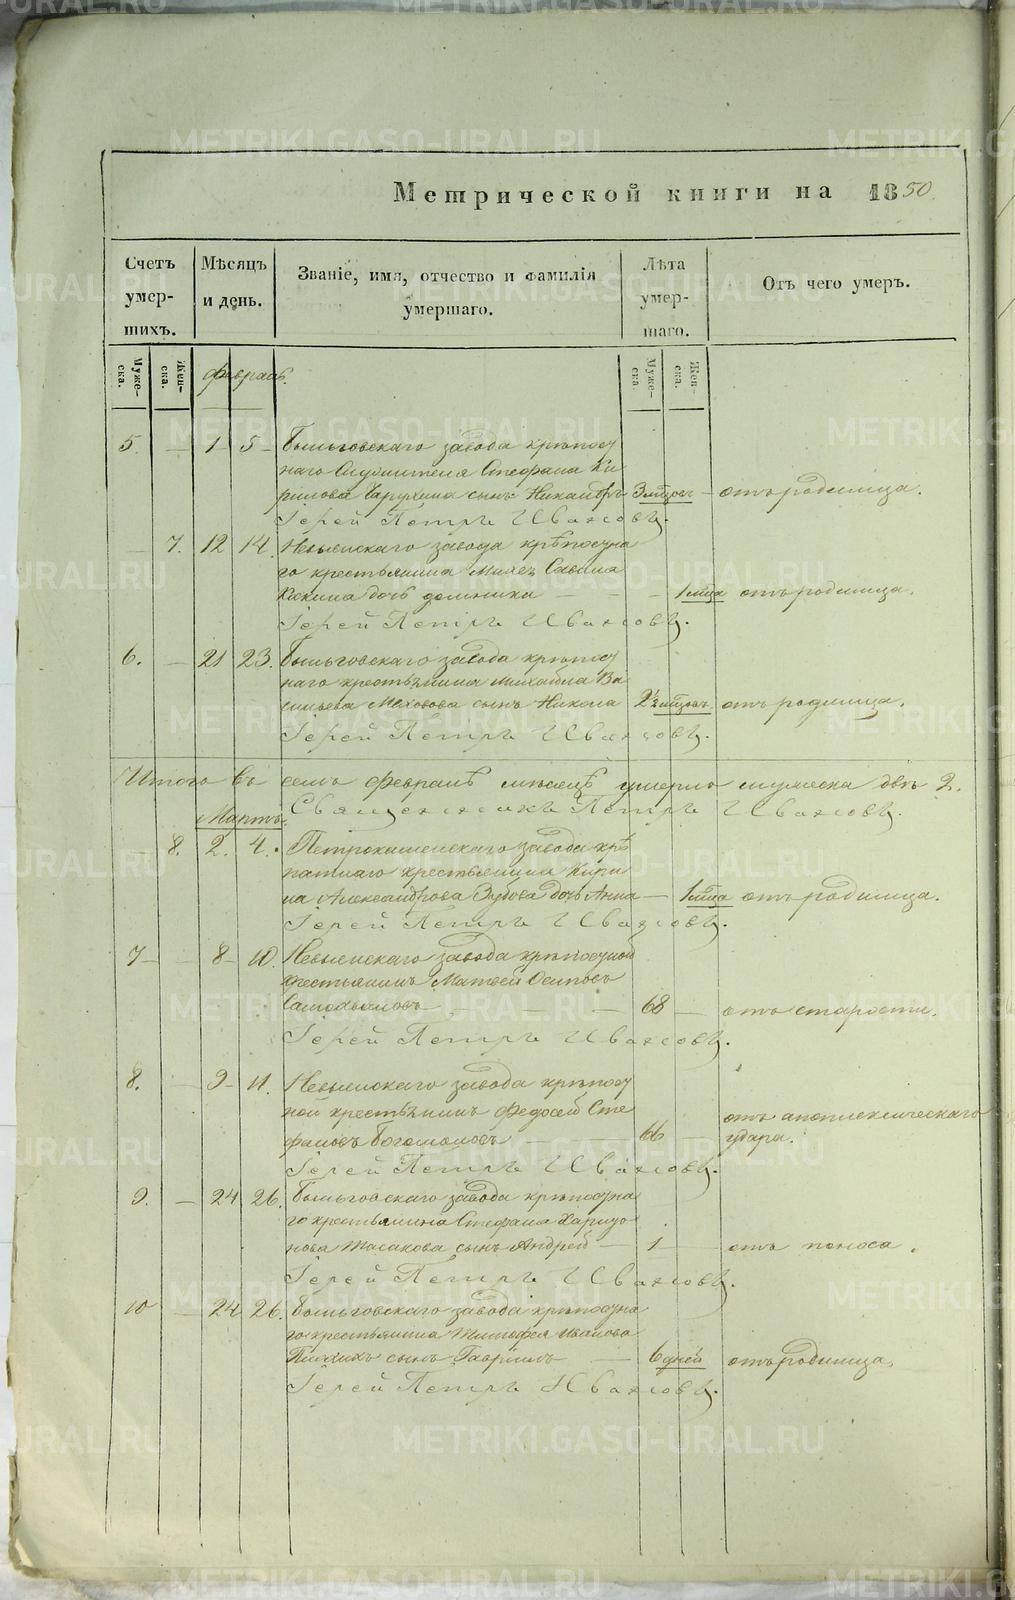 Метрической книги на 1850
Счетъ умер-шихъ.
Мѣсяцъ и день.
Званіе, имя, отчество и фамилія умершаго.
Лѣта умер-шаго.
Отъ чего умеръ.
Муже-ска.
Жен-ска.
Февраль.
Муже-ска.
Жен-ска.
5. — 1 5 Быньговскаго завода крѣпост
наго Служителя Стефана Ки
рилова сынъ Никандръ 3 мѣсяц — отъ родимца.
Іерей Петръ Ивановъ.
— 7. 12 14. Невьянскаго завода крѣпостна
го крестьянина Савина
дочь — — — 1 мца отъ родимца.
Іерей Петръ Ивановъ.
6. — 21 23. Быньговскаго завода крѣпост
наго крестьянина Михаила Ва
сильева Мехова сынъ Никола 2½ мѣсяц. отъ родимца.
Іерей Петръ Ивановъ.
Итого въ семъ Февралѣ мѣсяцѣ умерло мужеска двѣ 2.
Священникъ Петръ Ивановъ.
Мартъ.
— 8. 2. 4. Петрокаменскаго завода крѣ
постнаго крестьянина Кири
ла Александрова Зубова дочь Анна — 1 мца отъ родимца.
Іерей Петръ Ивановъ.
7 — 8 10. Невьянскаго завода крѣпостной
крестьянинъ Матвей Осиповъ
— — — 68 — отъ старости.
Іерей Петръ Ивановъ.
8. — 9 11. Невьянскаго завода крѣпост
ной крестьянинъ Федосей Сте
фановъ Богомоловъ — — 66 — отъ апоплексическаго
удара.
Іерей Петръ Ивановъ.
9. — 24 26. Быньговскаго завода крѣпостна
го крестьянина Стефана Харито
нова сынъ Андрей — 1 — отъ поноса.
Іерей Петръ Ивановъ.
10 — 24 26. Быньговскаго завода крѣпостна
го крестьянина Тимофея Иванова
сынъ Гавріилъ — 6 дней отъ родимца.
Іерей Петръ Ивановъ.
METRIKI.GASO-URAL.RU